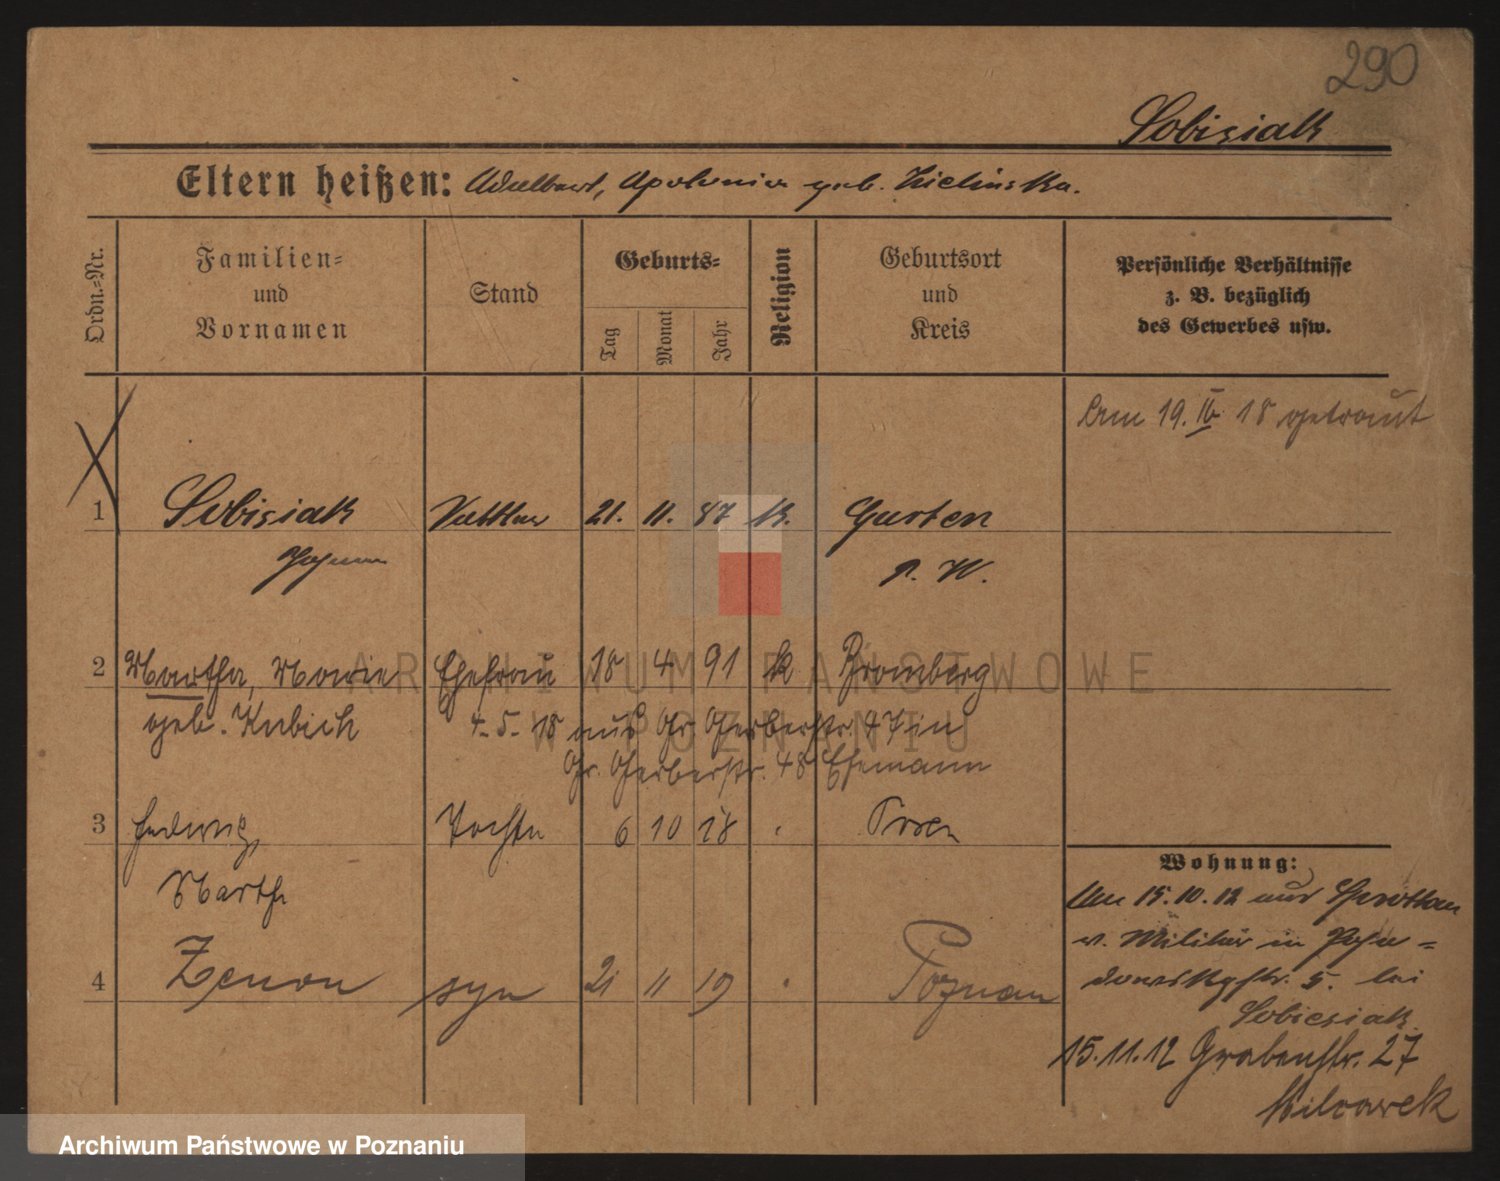 290
Sobisiak
Eltern heißen: Adalbert, Apolonia geb. Zielinska.
Ordn.-Nr.
Familien-
und
Vornamen
Stand
Geburts-
Tag
Monat
Jahr
Religion
Geburtsort
und
Kreis
Persönliche Verhältnisse
z. B. bezüglich
des Gewerbes usw.
Am 19. IV. 18 getraut
1 Sobisiak 21. 11. 87 k. Gurten
p. W.
2 Martha, Marie Ehefrau 18 4 91 k Bromberg
geb. Kubick 4.5.18 aus Gr. Gerberstr. 47 in
Gr. Gerberstr. 48 Ehemann
3 Hedwig, Tochter 6 10 18 Posen
Martha
4 Zenon syn 21 11 19 Poznań
Wohnung:
Am 15.10.12 aus Sprottau
v. Militär in
5. bei
Sobiesiak
15.11.12 Grabenstr. 27
ARCHIWUM PAŃSTWOWE
W POZNANIU
Archiwum Państwowe w Poznaniu